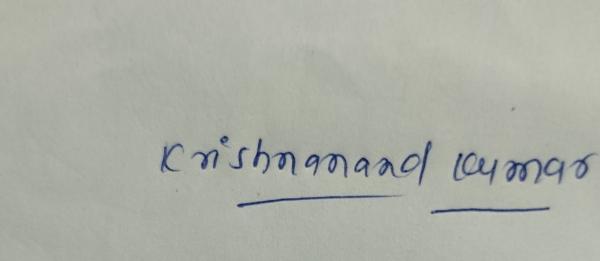 Krishnanand Kumar